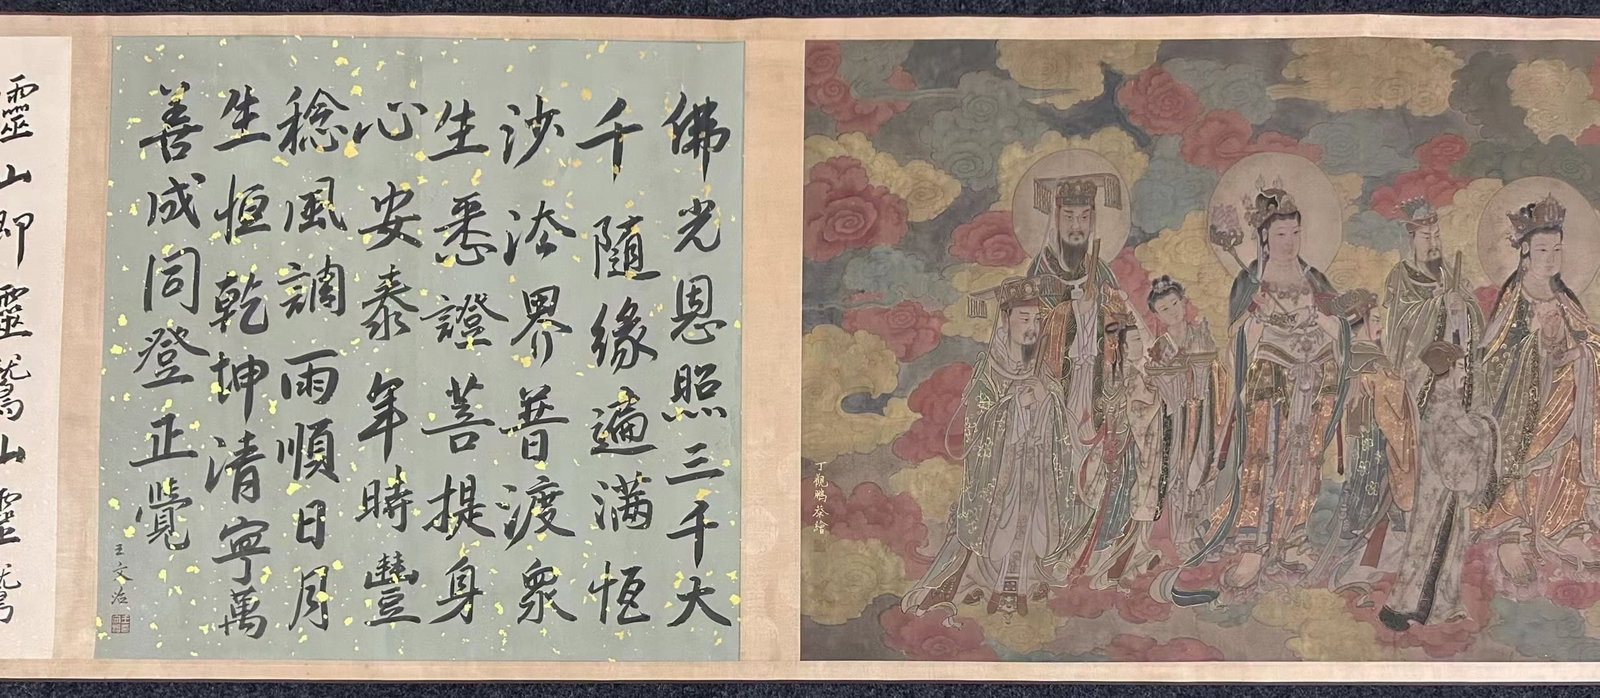 丁觀鵬恭繪
佛光恩照三千大
千隨緣遍滿恆
沙法界普渡眾
生悉證菩提身
心安泰年時豐
稔風調雨順日月
生恒乾坤清寧萬
善成同登正覺
王文治
靈山即靈鷲山靈鷲